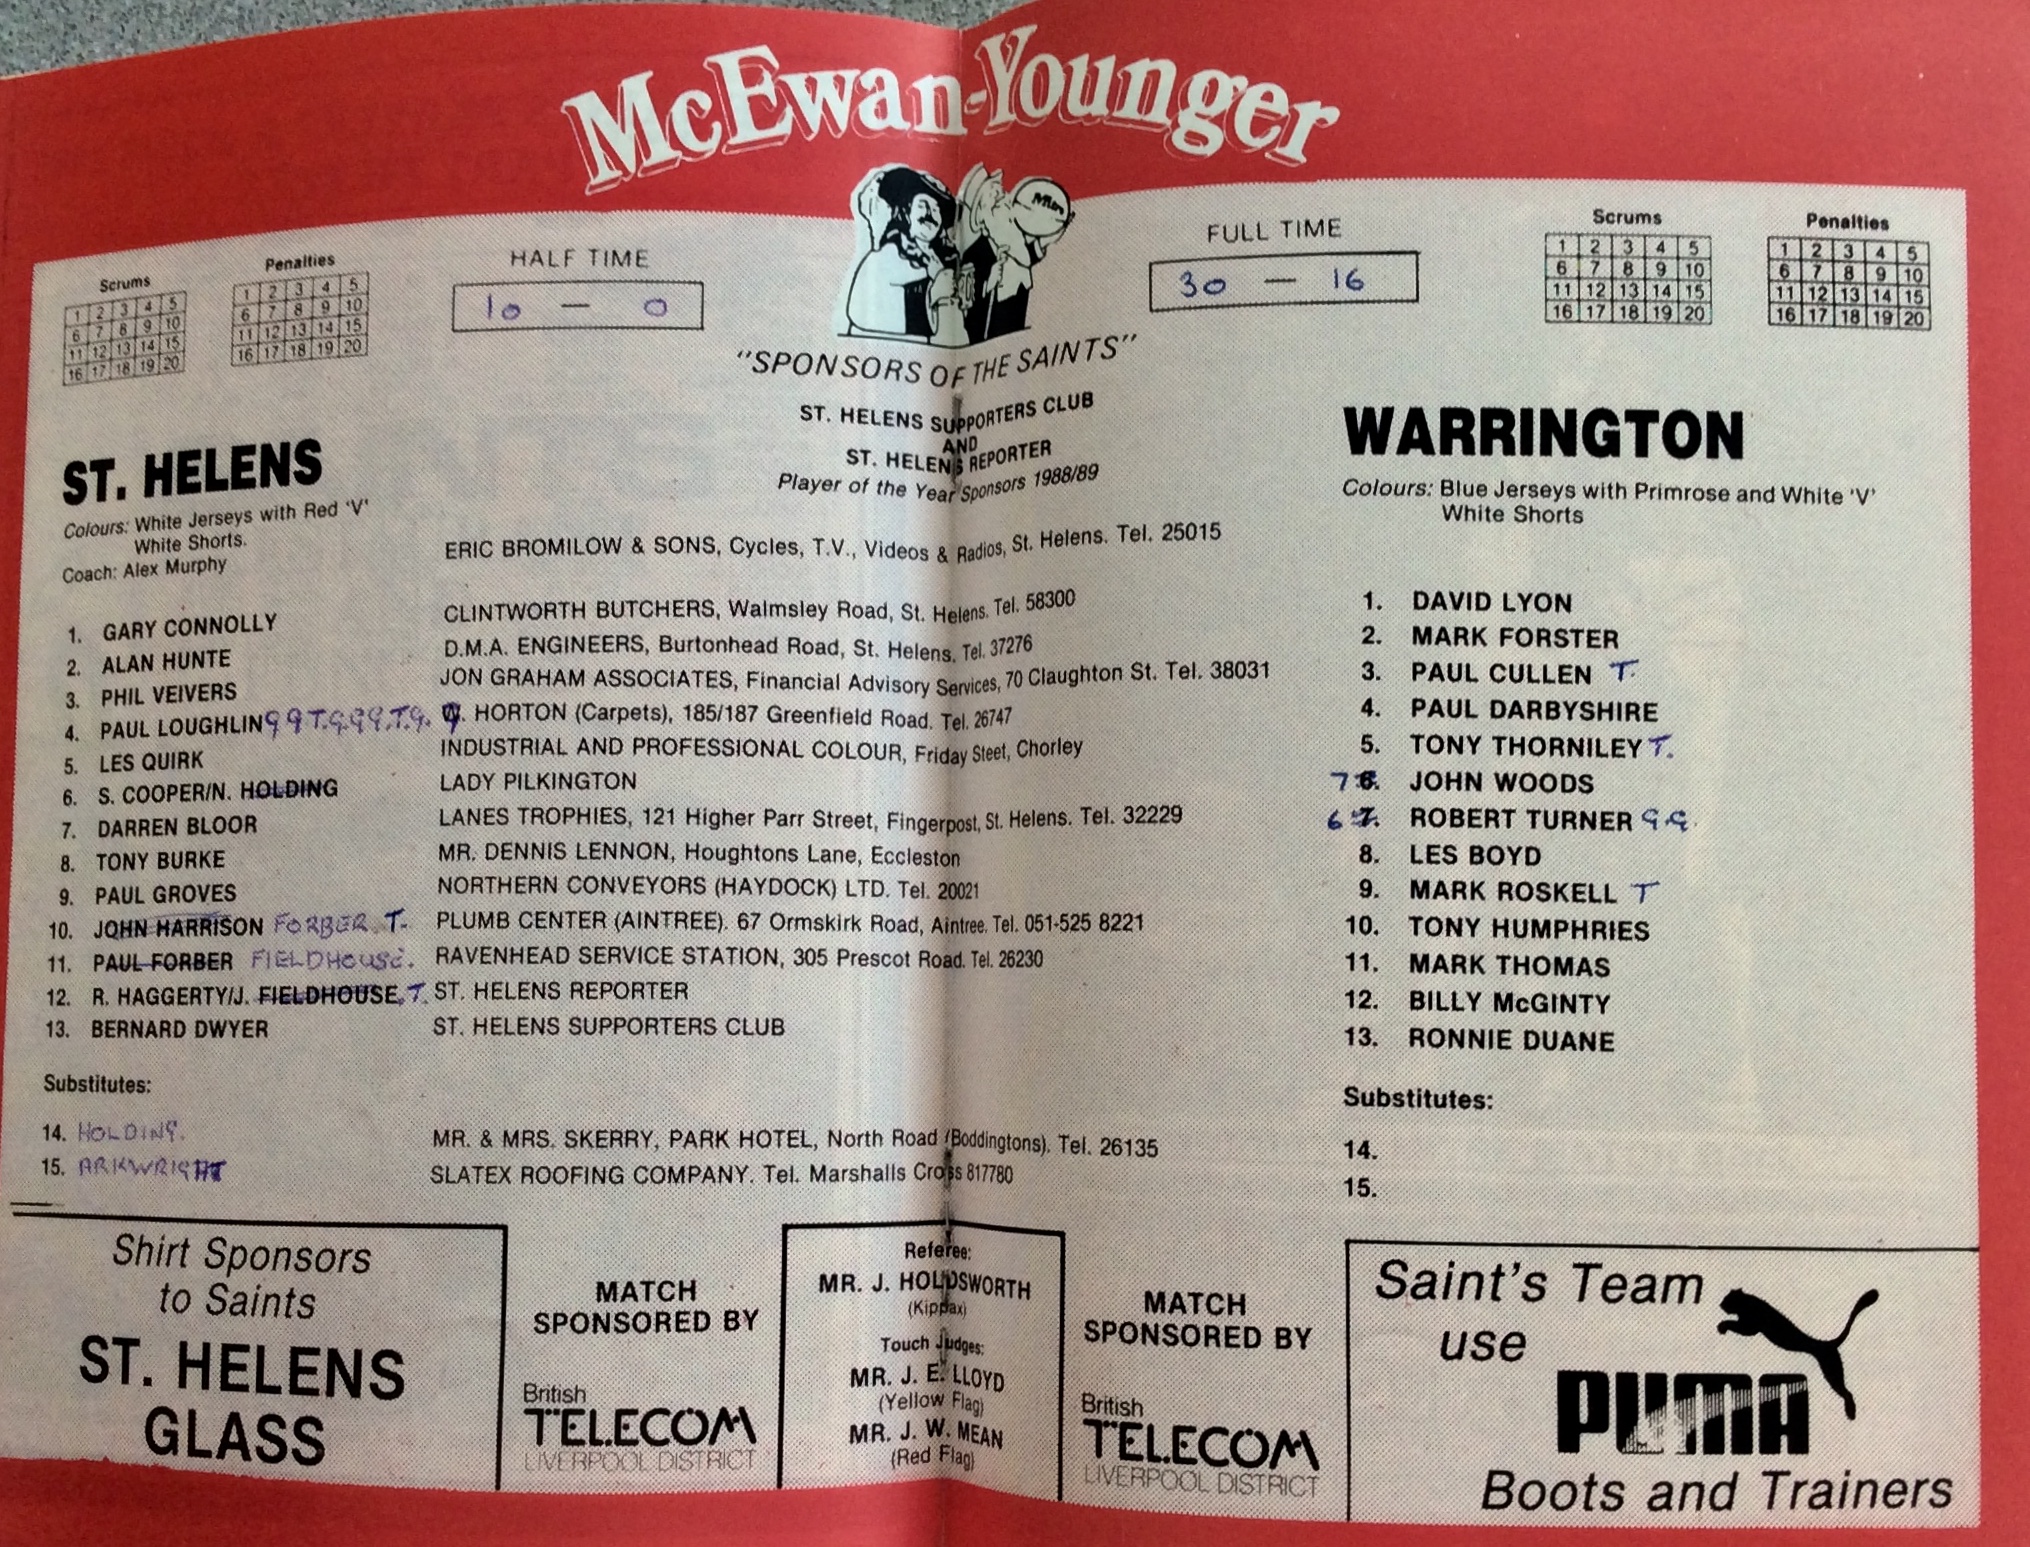 McEwan-Younger
Scrums
1 2 3 4 5
6 7 8 9 10
11 12 13 14 15
16 17 18 19 20
Penalties
1 2 3 4 5
6 7 8 9 10
11 12 13 14 15
16 17 18 19 20
HALF TIME
10 — 0
"SPONSORS OF THE SAINTS"
FULL TIME
30 — 16
Scrums
1 2 3 4 5
6 7 8 9 10
11 12 13 14 15
16 17 18 19 20
Penalties
1 2 3 4 5
6 7 8 9 10
11 12 13 14 15
16 17 18 19 20
ST. HELENS SUPPORTERS CLUB
AND
ST. HELENS REPORTER
Player of the Year Sponsors 1988/89
ST. HELENS
Colours: White Jerseys with Red 'V'
White Shorts.
Coach: Alex Murphy
ERIC BROMILOW & SONS, Cycles, T.V., Videos & Radios, St. Helens. Tel. 25015
1. GARY CONNOLLY CLINTWORTH BUTCHERS, Walmsley Road, St. Helens. Tel. 58300
2. ALAN HUNTE D.M.A. ENGINEERS, Burtonhead Road, St. Helens, Tel. 37276
3. PHIL VEIVERS JON GRAHAM ASSOCIATES, Financial Advisory Services, 70 Claughton St. Tel. 38031
4. PAUL LOUGHLIN G G T.G.G G.T.G. G W. HORTON (Carpets), 185/187 Greenfield Road. Tel. 26747
5. LES QUIRK INDUSTRIAL AND PROFESSIONAL COLOUR, Friday Steet, Chorley
6. S. COOPER/N. HOLDING LADY PILKINGTON
7. DARREN BLOOR LANES TROPHIES, 121 Higher Parr Street, Fingerpost, St. Helens. Tel. 32229
8. TONY BURKE MR. DENNIS LENNON, Houghtons Lane, Eccleston
9. PAUL GROVES NORTHERN CONVEYORS (HAYDOCK) LTD. Tel. 20021
10. JOHN HARRISON FORBER T. PLUMB CENTER (AINTREE). 67 Ormskirk Road, Aintree. Tel. 051-525 8221
11. PAUL FORBER FIELDHOUSE. RAVENHEAD SERVICE STATION, 305 Prescot Road. Tel. 26230
12. R. HAGGERTY/J. FIELDHOUSE. T. ST. HELENS REPORTER
13. BERNARD DWYER ST. HELENS SUPPORTERS CLUB
Substitutes:
14. HOLDING. MR. & MRS. SKERRY, PARK HOTEL, North Road (Boddingtons). Tel. 26135
15. ARKWRIGHT SLATEX ROOFING COMPANY. Tel. Marshalls Cross 817780
WARRINGTON
Colours: Blue Jerseys with Primrose and White 'V'
White Shorts
1. DAVID LYON
2. MARK FORSTER
3. PAUL CULLEN T.
4. PAUL DARBYSHIRE
5. TONY THORNILEY T.
7 6. JOHN WOODS
6 7. ROBERT TURNER G.G.
8. LES BOYD
9. MARK ROSKELL T
10. TONY HUMPHRIES
11. MARK THOMAS
12. BILLY McGINTY
13. RONNIE DUANE
Substitutes:
14.
15.
Shirt Sponsors
to Saints
ST. HELENS
GLASS
MATCH
SPONSORED BY
British
TELECOM
LIVERPOOL DISTRICT
Referee:
MR. J. HOLDSWORTH
(Kippax)
Touch Judges:
MR. J. E. LLOYD
(Yellow Flag)
MR. J. W. MEAN
(Red Flag)
MATCH
SPONSORED BY
British
TELECOM
LIVERPOOL DISTRICT
Saint's Team
use
PUMA
Boots and Trainers